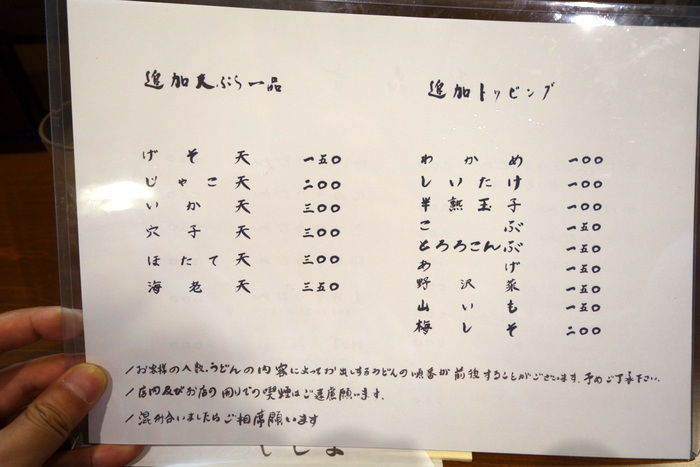 追加天ぷら一品
げそ天 一五〇
じゃこ天 二〇〇
いか天 三〇〇
穴子天 三〇〇
ほたて天 三〇〇
海老天 三五〇
追加トッピング
わかめ 一〇〇
しいたけ 一〇〇
半熟玉子 一〇〇
こぶ 一五〇
とろろこんぶ 一五〇
あげ 一五〇
野沢菜 一五〇
山いも 一五〇
梅しそ 二〇〇
/お客様の人数、うどんの内容によってお出しするうどんの順番が前後することがございます、予めご了承下さい。
/店内及びお店の周りでの喫煙はご遠慮願います。
/混み合いましたらご相席願います